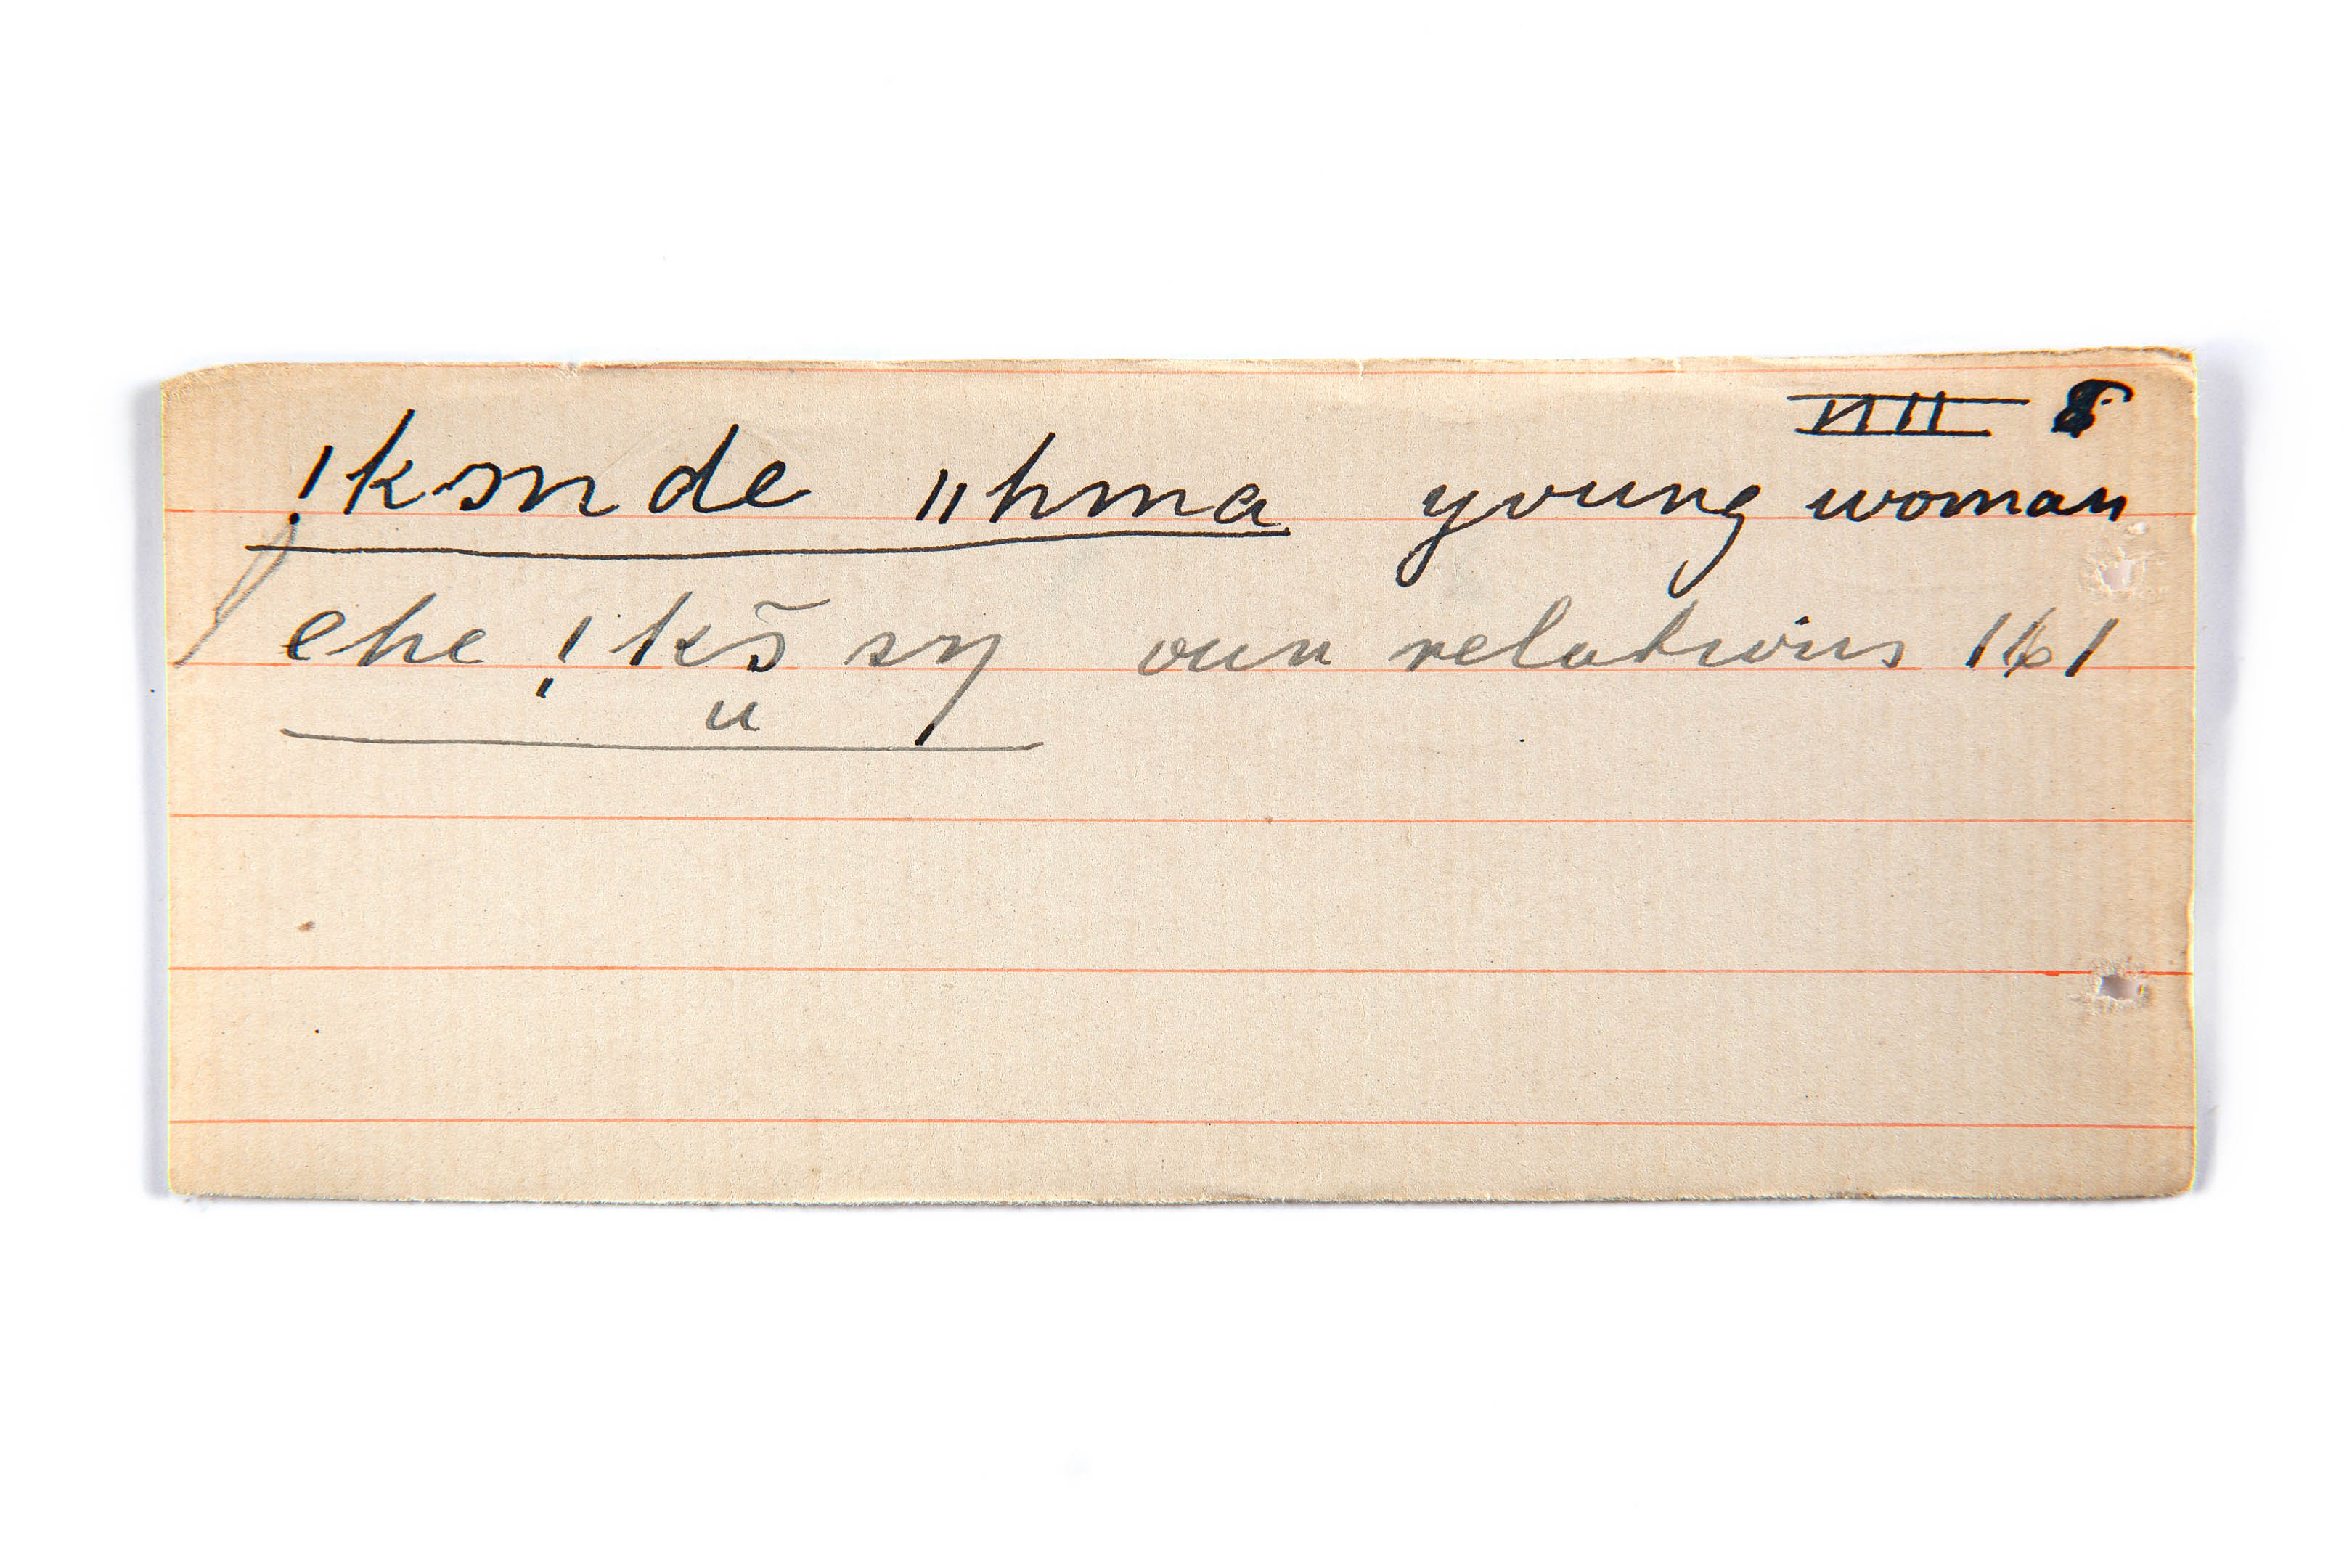 VIII 8
!kɔnde ǁhma young woman
ehe !kɔ̄ sŋ our relations 161
u